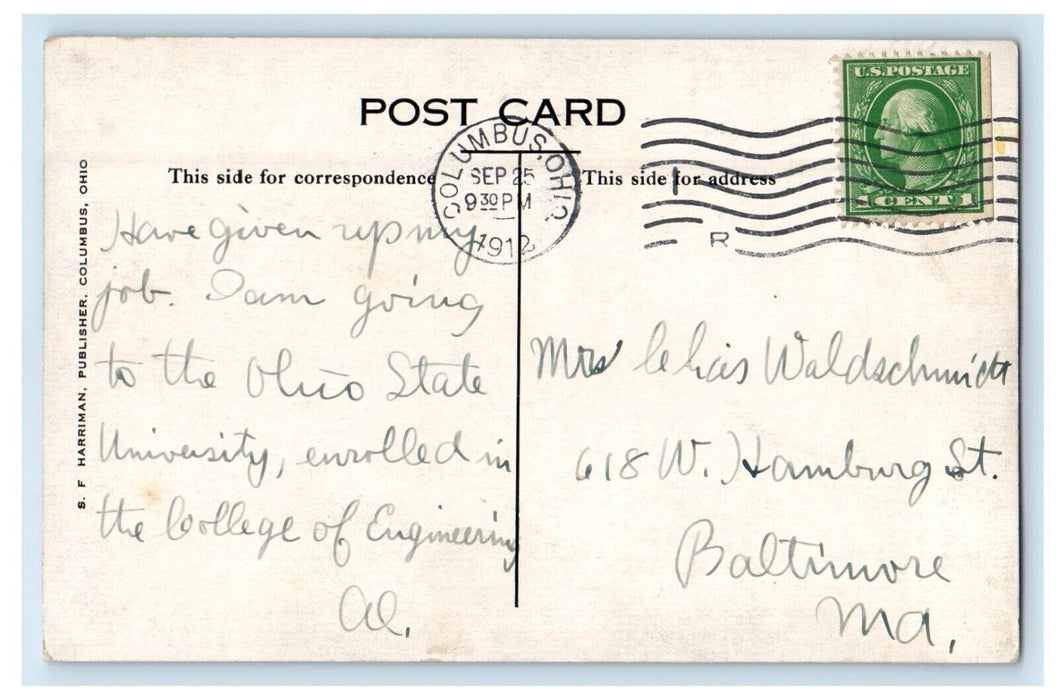 POST CARD
U.S.POSTAGE
1 CENT 1
COLUMBUS, OHIO
SEP 25
9 30 PM
1912
R
This side for correspondence
This side for address
S. F HARRIMAN, PUBLISHER, COLUMBUS, OHIO
Have given up my
job. I am going
to the Ohio State
University, enrolled in
the College of Engineering
Al.
Mrs Waldschmidt
618 W. Hamburg St.
Baltimore
Md.